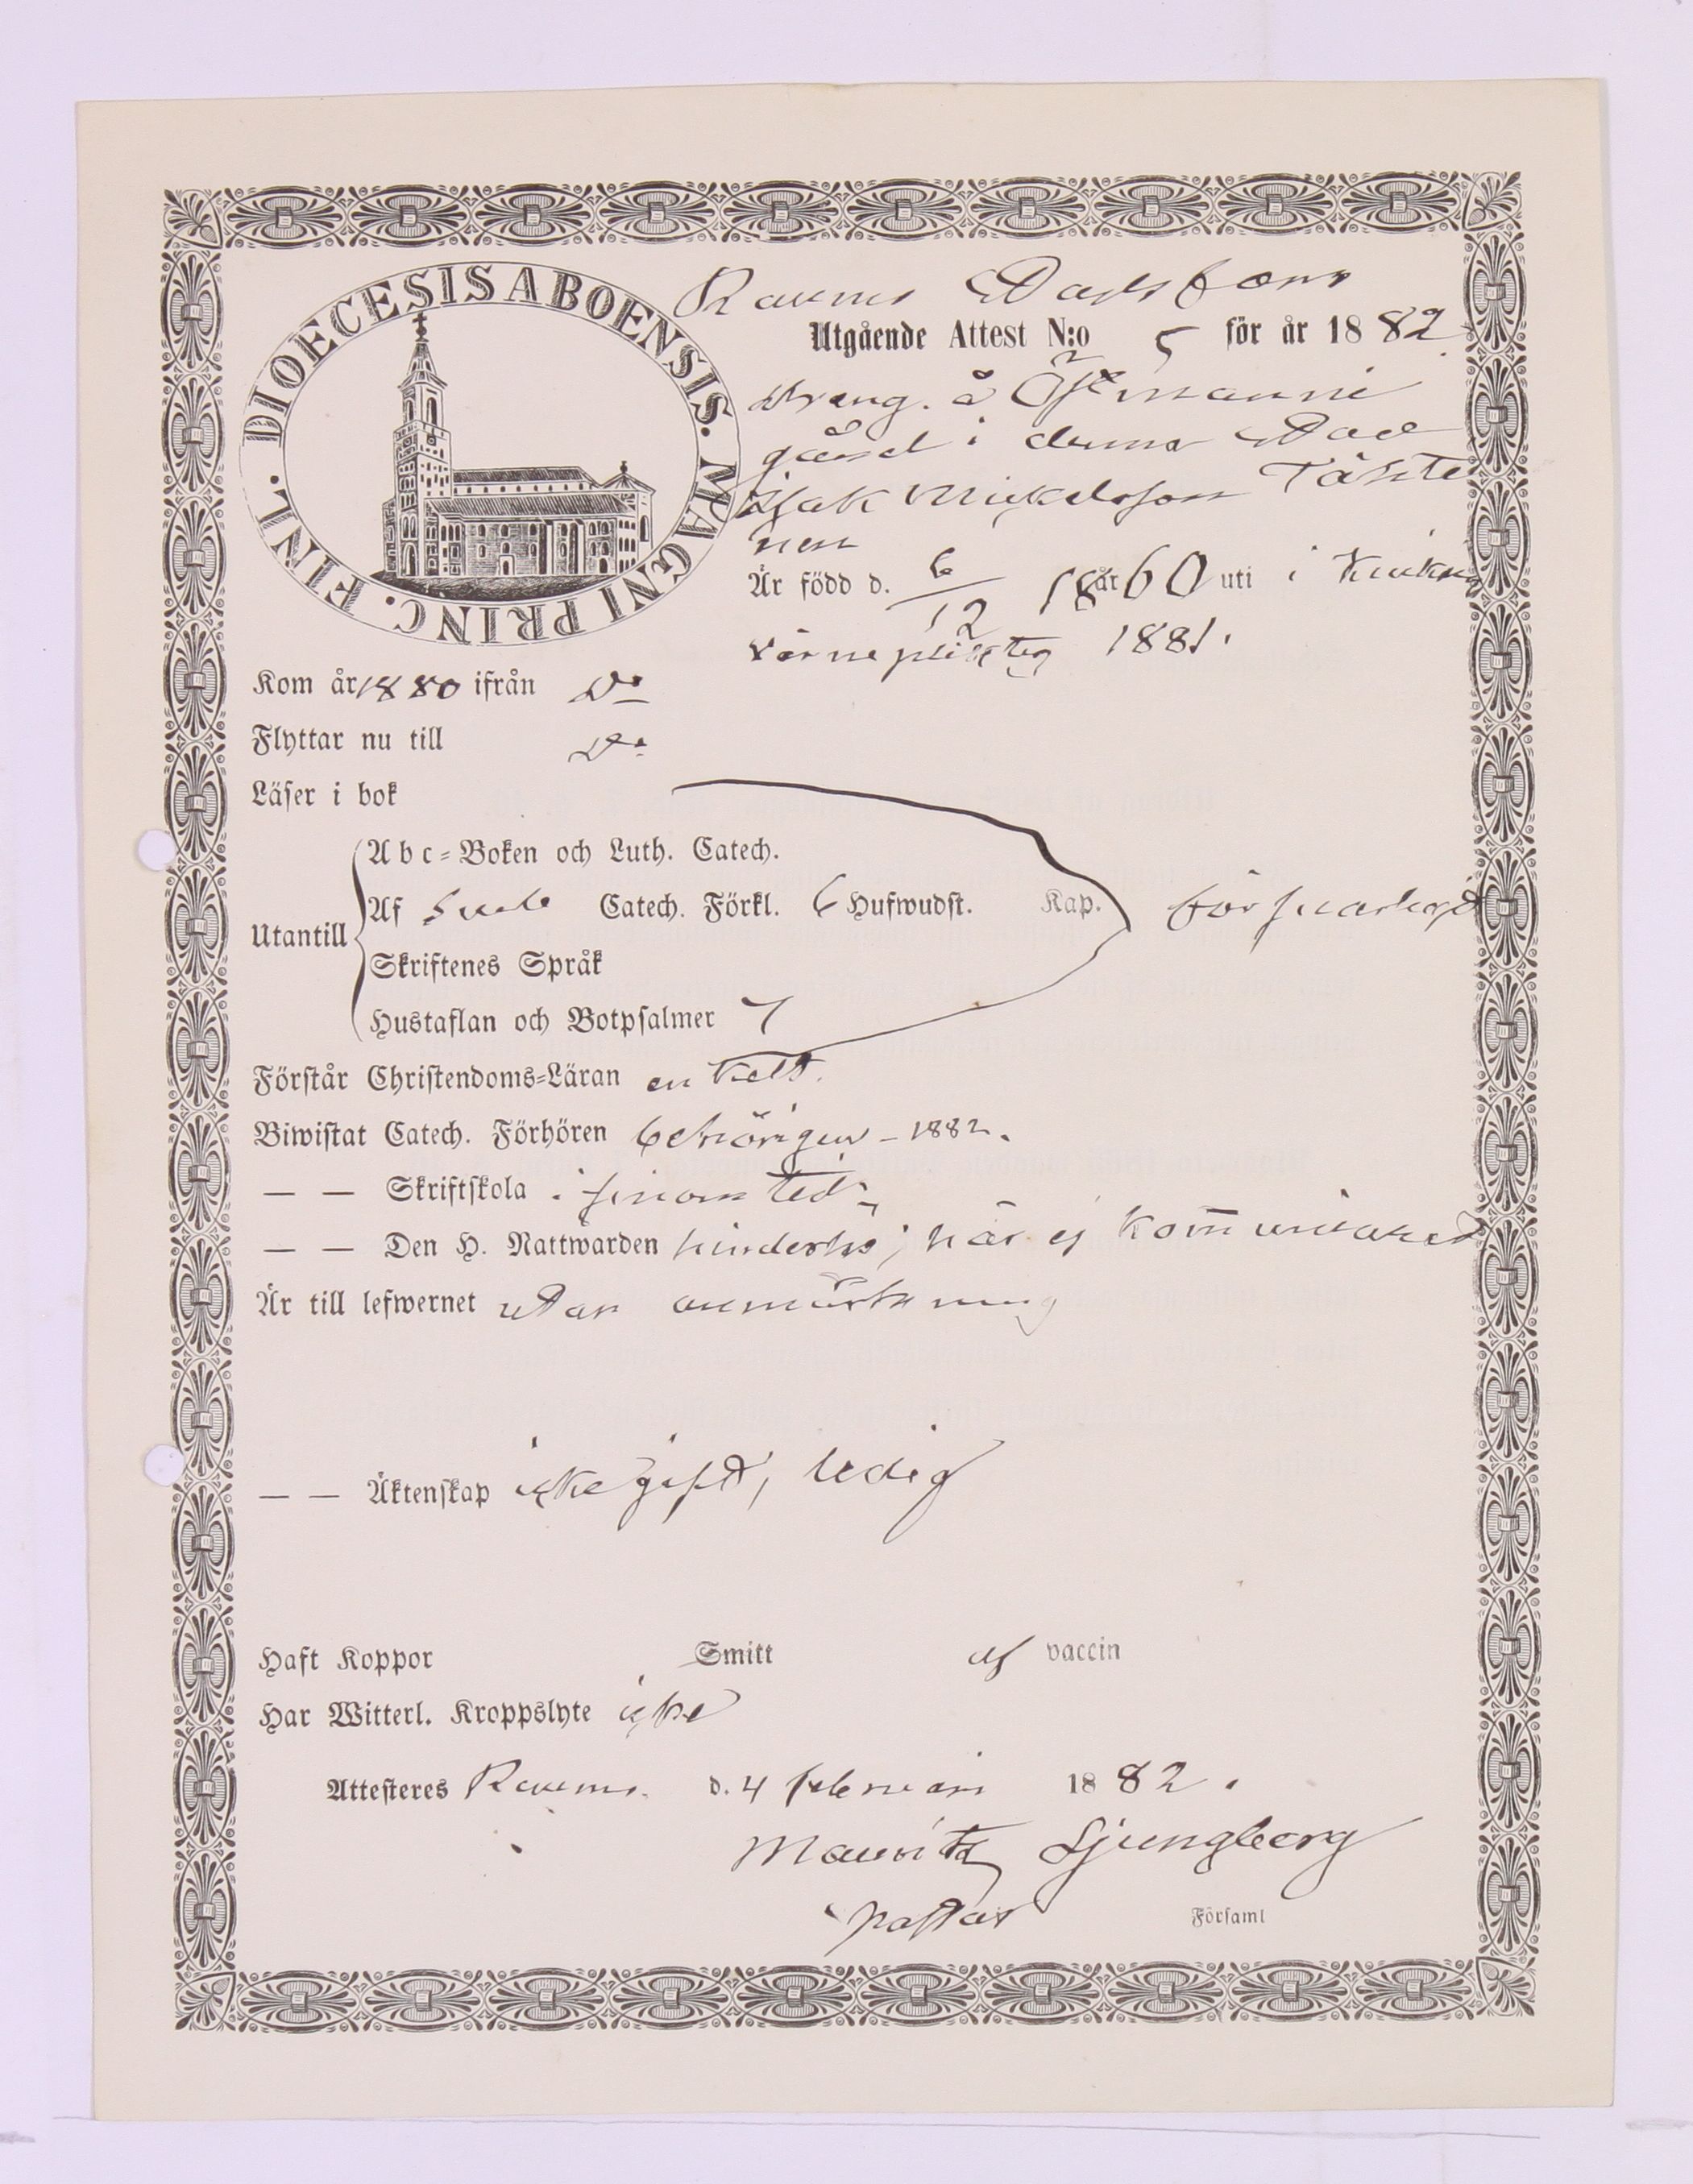 DIOECESIS ABOENSIS. MAGNI PRINC. FINL.
Raumo Stadsförs
Utgående Attest N:o 5 för år 1882.
Dreng. å Östmanni
gård i denna Stad
Isak Mickelsson Tähte
nen
Är född d. 6/12 18år60 uti i Kiukais
värnepligtig 1881.
Kom år 1880 ifrån Do
Flyttar nu till Do
Läser i bok
Abc-Boken och Luth. Catech.
Utantill Af Catech. Förkl. 6 Hufwudst. Kap. försvarligt
Skriftenes Språk
Hustaflan och Botpsalmer 7
Förstår Christendoms-Läran enkelt.
Biwistat Catech. Förhören behörigen - 1882.
— — Skriftskola i sinom tid
— — Den H. Nattwarden hinderlös, här ej kommunicerat
Är till lefwernet utan anmärkning
— — Äktenskap icke gift, ledig
Haft Koppor Smitt af vaccin
Har Witterl. Kroppslyte icke
Attesteres Raumo. d. 4 februari 1882.
Mauritz Ljungberg
pastor Församl